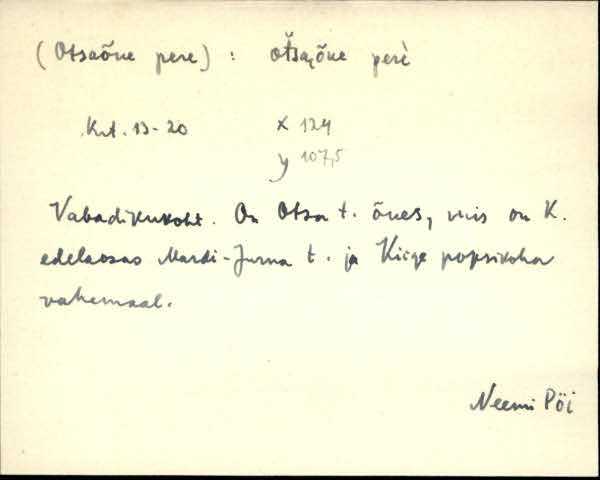 (Otsaõue pere) : oťsa, õue perè
Krt. 13-20 x 124
y 107,5
Vabadikukoht. On Otsa t. õues, mis on K.
edelaosas Mardi-Jurna t. ja Kiige popsikoha
vahemaal.
Neemi Pöi